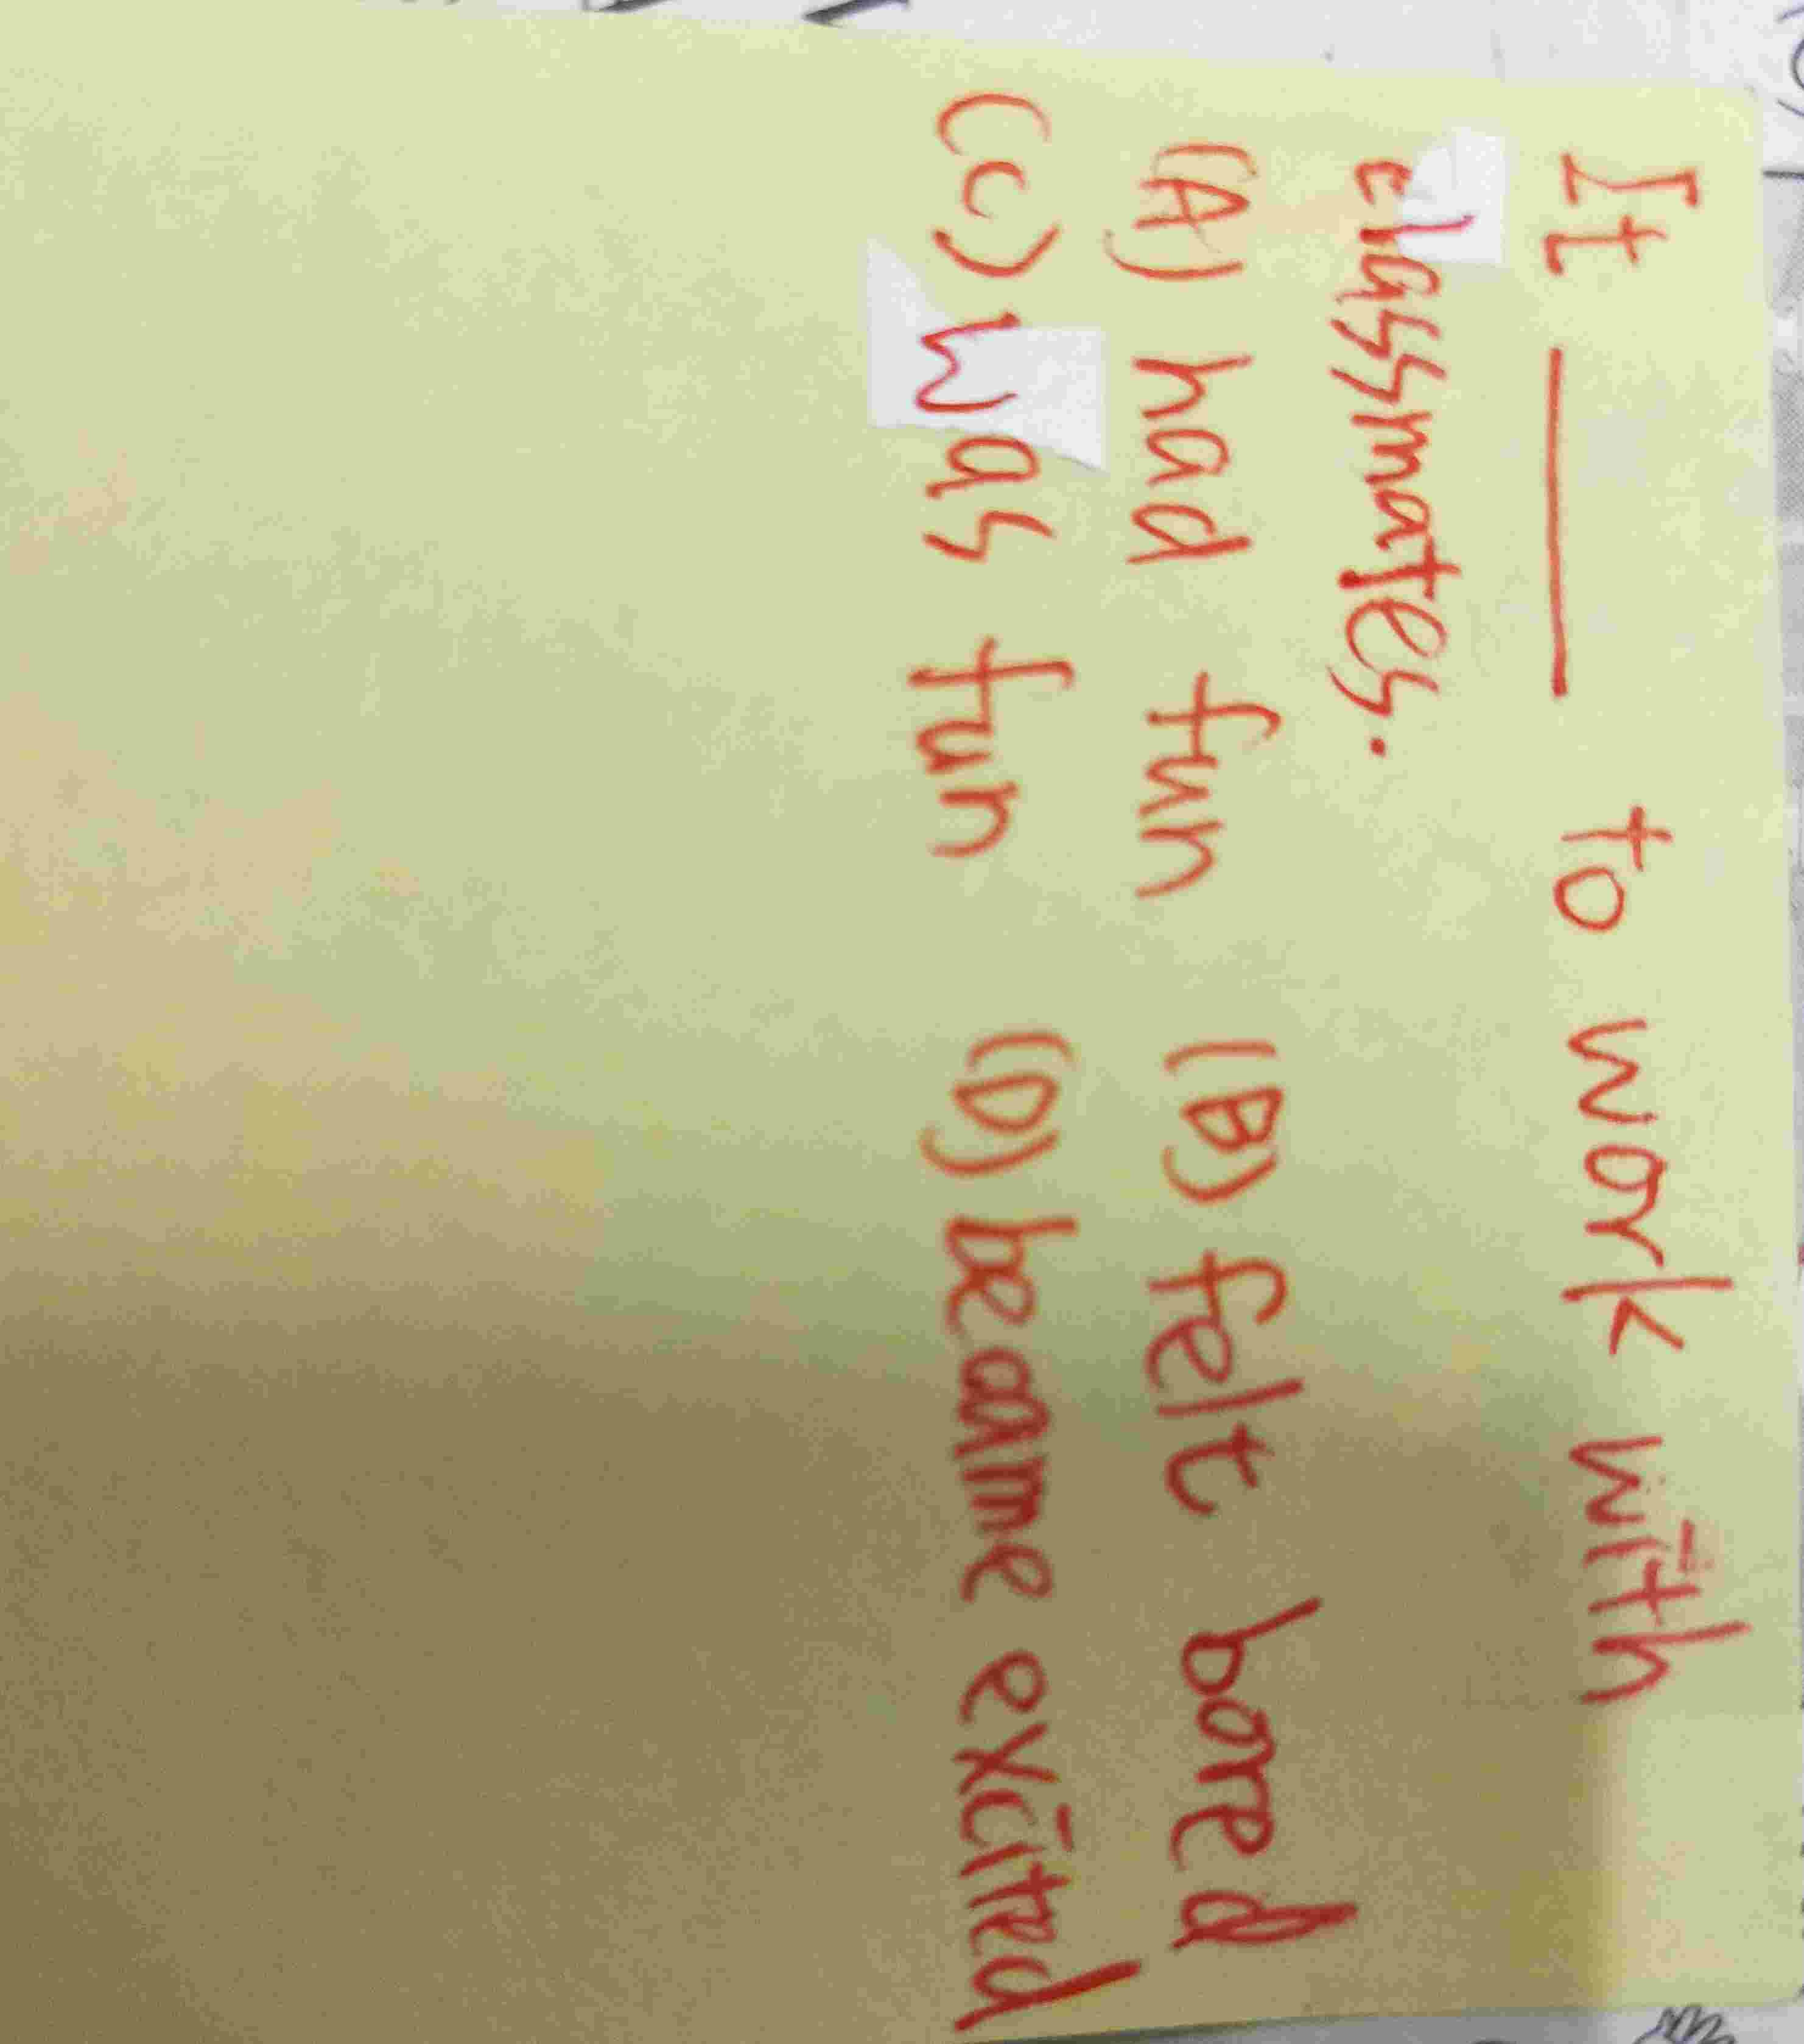 It ______ to work with
classmates.
(A) had fun (B) felt bored
(C) was fun (D) became excited